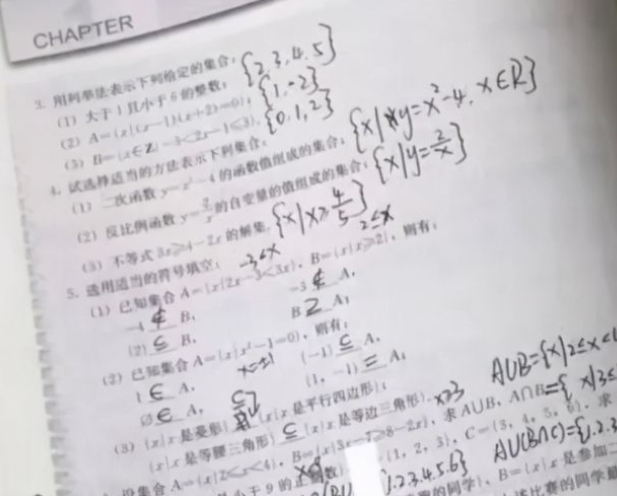 CHAPTER
3. 用列举法表示下列给定的集合:
(1) 大于1且小于6的整数; {2,3,4,5}
(2) A={x|(x-1)(x+2)=0}; {1,-2}
(3) B={x∈Z|-3<2x-1≤3}. {0,1,2}
4. 试选择适当的方法表示下列集合:
(1) 二次函数 y=x²-4 的函数值组成的集合; {x|y=x²-4, x∈R}
(2) 反比例函数 y=2/x 的自变量的值组成的集合; {x|y=2/x}
(3) 不等式 3x≥4-2x 的解集. {x|x≥4/5}
5. 选用适当的符号填空: -3<x 2≤x
(1) 已知集合 A={x|2x-3<3x}, B={x|x≥2}, 则有:
-4 ∉ B, -3 ∉ A,
{2} ⊆ B, B A;
(2) 已知集合 A={x|x²-1=0}, 则有: x=±1
1 ∈ A, {-1} ⊆ A,
∅ ∈ A, {1, -1} = A;
(3) {x|x是菱形} {x|x是平行四边形};
{x|x是等腰三角形} ⊆ {x|x是等边三角形}. x≥3 A∪B={x|2≤x<
设集合 A={x|2≤x<4}, B={x|3x-7≥8-2x}, 求 A∪B, A∩B= { x|3≤
小于9的正 数}, {1, 2, 3}, C={3, 4, 5, 6}, 求
{1.2.3.4.5.6} A∪(B∩C)={1.2.3
的同学}, B={x|x是参加
比赛的同学